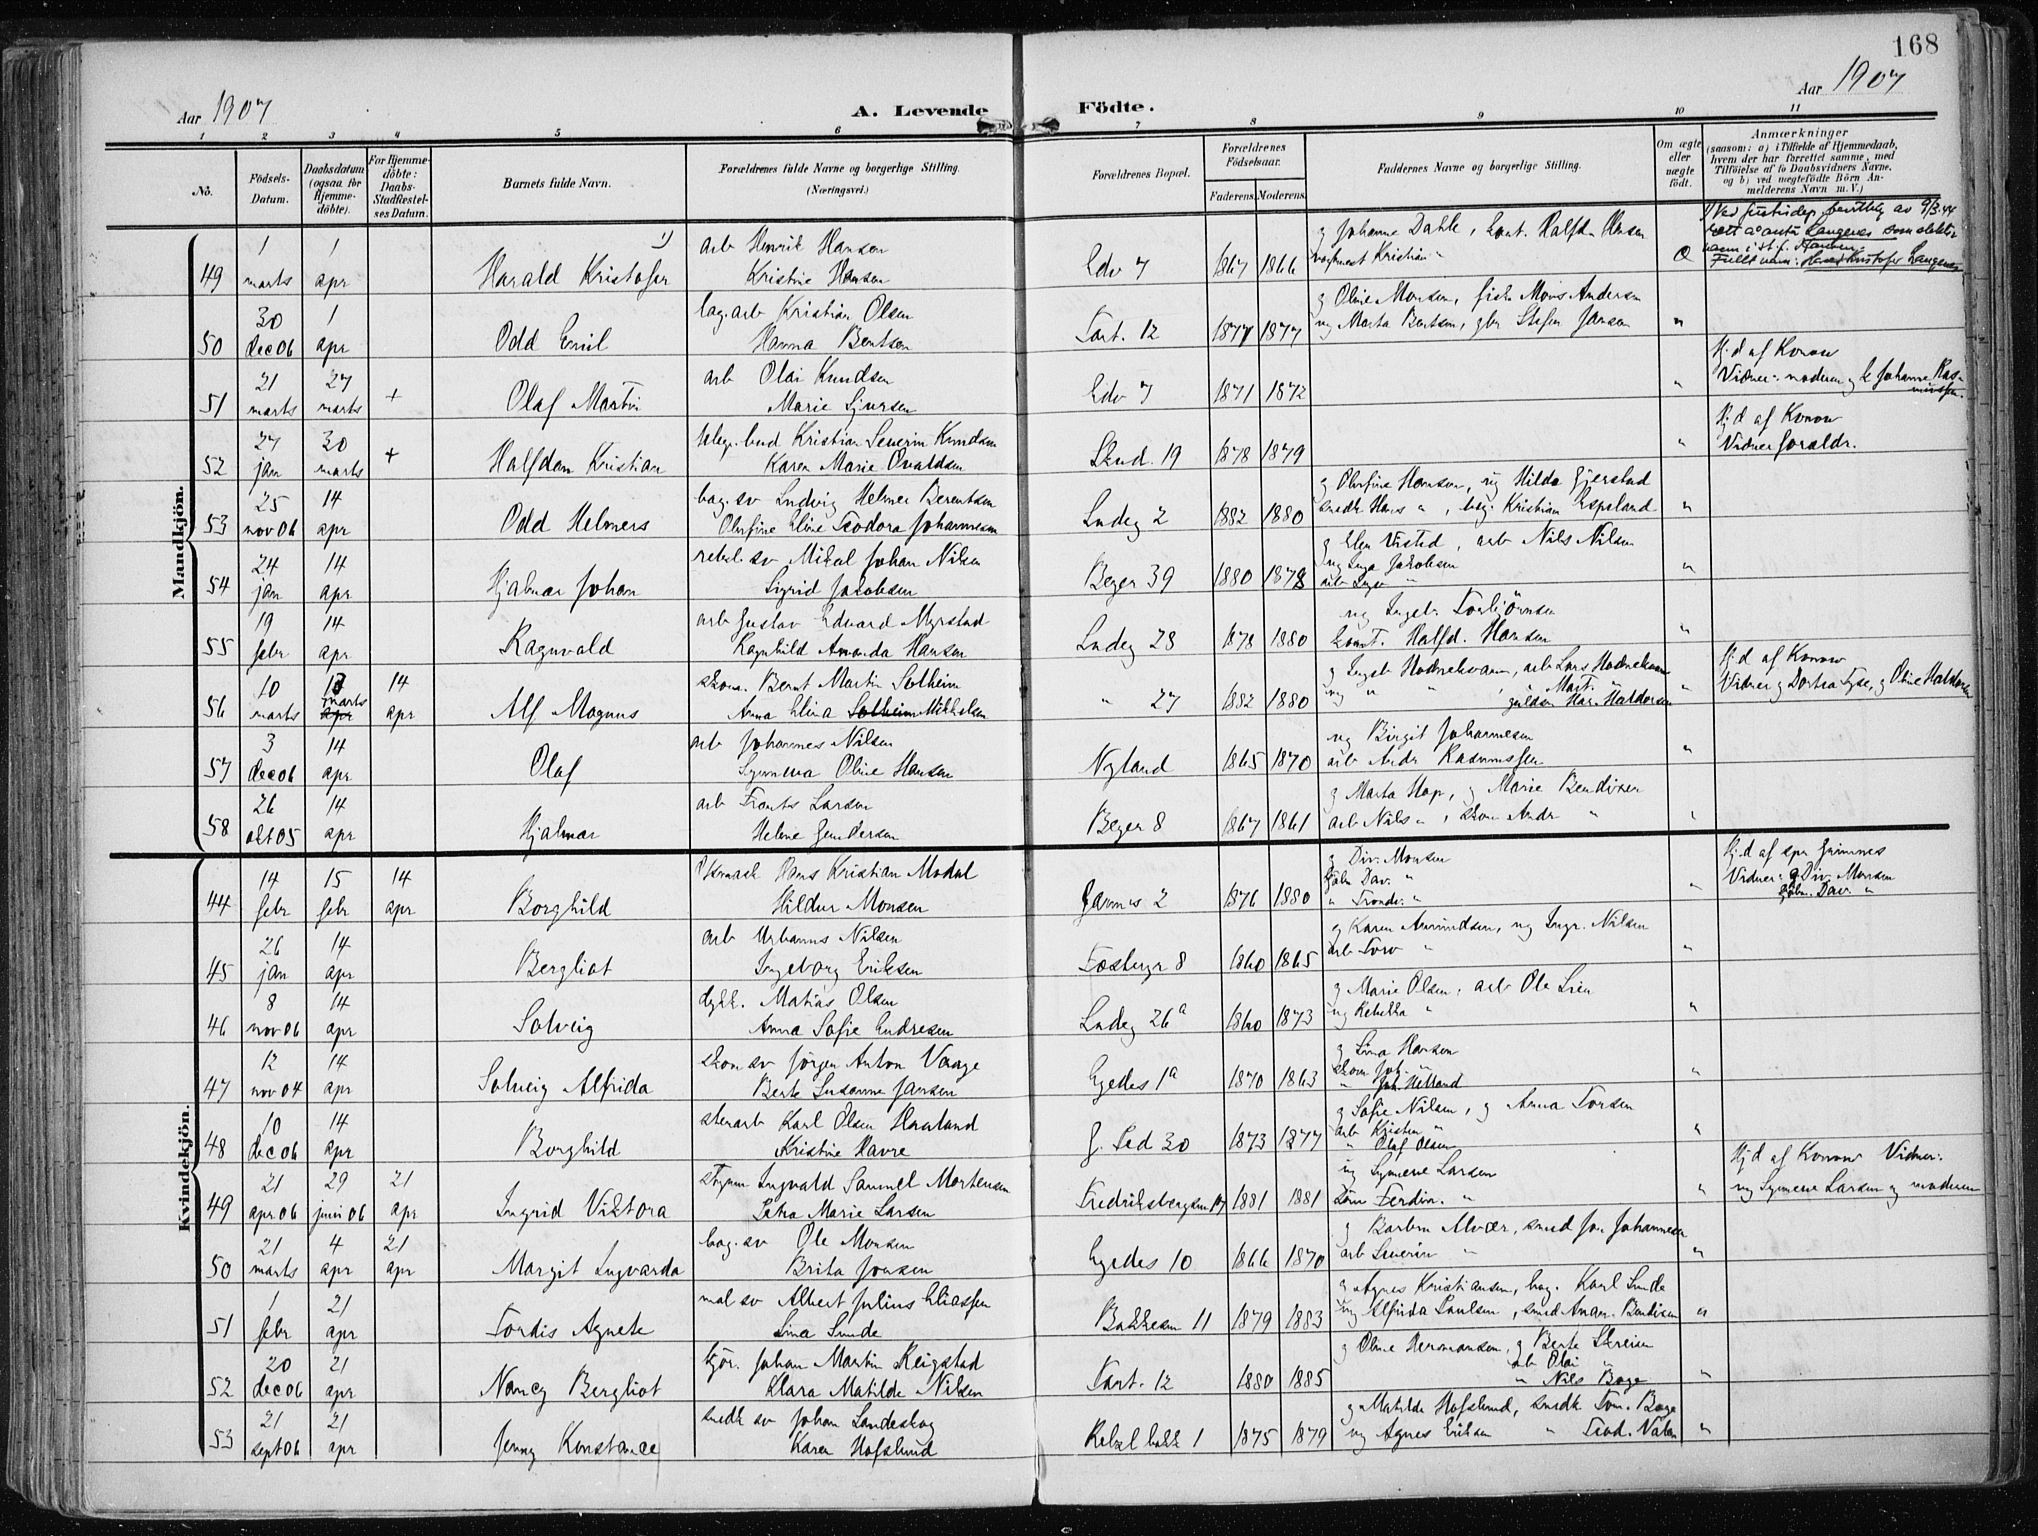 168
Aar 1907
A. Levende Födte.
Aar 1907
1 2 3 4 5 6 7 8 9 10 11
No.
Födsels-Datum.
Daabsdatum (ogsaa for Hjemme-döbte).
For Hjemme-döbte: Daabs-Stadfæstel-ses Datum.
Barnets fulde Navn.
Forældrenes fulde Navne og borgerlige Stilling. (Næringsvei.)
Forældrenes Bopæl.
Forældrenes Födselsaar.
Faderens. Moderens.
Faddernes Navne og borgerlige Stilling.
Om ægte eller uægte födt.
Anmærkninger (saasom: a) i Tilfælde af Hjemmedaab, hvem der har forrettet samme, med Tilföielse af to Daabsvidners Navne, og b) ved uægtefödte Börn An-melderens Navn m. V.)
Mandkjön.
49 1 marts 1 apr Harald Kristofer 1) arb Henrik Hansen Kristine Hansen Edv 7 1867 1866 g Johanne Dahle, Halfdan Hansen Kristian "
50 30 dec 06 1 apr Odd Emil bag.arb Kristian Olsen Hanna Bentsen Tart. 12 1877 1877 g Oline Monsen, fisk Mons Andersen ug Marta Bentsen, gbr Stefen Jansen "
51 21 marts 27 marts + Olaf Martin arb Olai Knudsen Marie Sjursen Edv 7 1871 1872 " Hj.d af Konow Vidner: moderen og Johanne Rasmussen
52 27 jan 30 marts + Halfdan Kristian bud Kristian Severin Knudsen Karen Marie Osvaldsen Skud. 19 1878 1879 " Hj.d af Konow Vidner foraldr.
53 25 nov 06 14 apr Odd Helmers bag.sv Ludvig Helmer Berentsen Olufine Eline Teodora Johannesen Ladeg 2 1882 1880 g Olufine Hansen, ug Hilda Gjerstad smedk Hans ", bag. Kristian Espeland "
54 24 jan 14 apr Hjalmar Johan rebsl.sv Mikal Johan Nilsen Sigrid Jakobsen Beger 39 1880 1878 g Elen Vistid, arb Nils Nilsen ug Inga Jakobsen arb "
55 19 febr 14 apr Ragnvald arb Gustav Edvard Myrstad Ragnhild Amanda Hansen Ladeg 28 1878 1880 ug Ingeb. Torbjörnsen Halfd. Hansen "
56 10 marts 13 marts 14 apr Alf Magnus skom. Bernt Martin Solheim Anna Elina Solheim Mikkelsen " 27 1882 1880 g Ingeb Hodnekvam, arb Lars Hodnekvam ug " ", Mart. " guldsm Har. Haldorsen " Hj.d af Konow Vidner g Dortea Tyse, g Oline Haldorsen
57 3 dec 06 14 apr Olaf arb Johannes Nilsen Synneva Oline Hansen Nyland 1865 1870 ug Birgit Johannesen arb Andr Rasmussen "
58 26 okt 05 14 apr Hjalmar arb Frants Larsen Helene Gundersen Beger 8 1867 1861 g Marta Hop, g Marie Bendixen arb Nils ", skom Andr " "
Kvindekjön.
44 14 febr 15 febr 14 apr Borghild Hans Kristian Modal Hildur Monsen Jannes 2 1876 1880 g Div. Monsen Dav. " " Trondr. " " Hj.d af spr Grimnes Vidner: g Div. Monsen Dav. "
45 26 jan 14 apr Bergliot arb Urbanus Nilsen Ingeborg Eriksen Fosbergr 8 1860 1865 g Karen Amundsen, ug Ingr. Nilsen arb Tov " "
46 8 nov 06 14 apr Solveig dykk. Matias Olsen Anna Sofie Endresen Ladeg 26a 1860 1873 g Marie Olsen, arb Ole Lien ug Rebekka " "
47 12 nov 04 14 apr Solveig Alfrida skom sv Jörgen Anton Vaage Berte Susanne Jansen Egedes 1a 1870 1863 g Lina Hansen skom. Joh. " " Joh. Helland "
48 10 dec 06 14 apr Borghild stenarb Karl Olsen Haaland Kristine Havre 30 1873 1877 g Sofie Nilsen, g Anna Torsen arb Kristen " " Olaf Olsen "
49 21 apr 06 29 juni 06 21 apr Ingrid Viktora Ingvald Samuel Mortensen Petra Marie Larsen Fredriksbergsm 17 1881 1881 ug Synneve Larsen Ferdin. " " Hj.d af Konow Vidner: ug Synneve Larsen og moderen
50 21 marts 4 apr 21 apr Margit Ingvarda bag.sv Ole Monsen Brita Jonsen Egedes 10 1866 1870 g Barbra Alvær, smed Jon Johannesen arb Severin " "
51 1 febr 21 apr Tordis Agnete mal sv Albert Julius Eliassen Lina Sunde Bakkesm 11 1879 1883 g Agnes Kristiansen, bag. Karl Sunde ug Alfrida Paulsen, smed Anan. Bendixen "
52 20 dec 06 21 apr Nancy Bergliot kjör. Johan Martin Reigstad Klara Matilde Nilsen Tart. 12 1880 1885 g Oline Hermansen, g Berte Skreien arb Olai " " Nils Boge "
53 21 sept 06 21 apr Jenny Konstance smedk sv Johan Landeskog Karen Hofslund Rebsl bakk 1 1875 1879 g Matilde Hofslund, smedk Tom. Boge ug Agnes Eriksen " Teod. Valen "
1) Ved justisdep. bevilling av 9/3.44 rett a anta Langenes som slektsnavn i st. f. Hansen. Fullt navn: Harald Kristofer Langenes